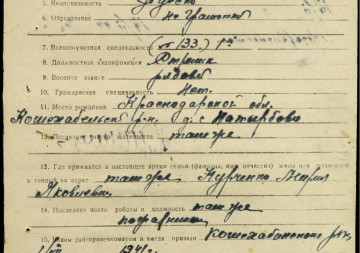 5. Национальность
6. Образование не грамотный
7. Военно-учетная специальность (№ 133) 1
8. Должностная квалификация Стрелок
9. Военное звание рядовой
10. Гражданская специальность Нет.
11. Место рождения Краснодарской обл.
Кошехабльский р-н. д.с Натырбово
12. Последнее место жительства там же
13. Где проживает в настоящее время семья (фамилия, имя, отчество) жены или родителей
и точный их адрес там же, Мария
Яковлевна
14. Последнее место работы и должность там же
15. Каким райгорвоенкоматом и когда призван Кошехабльским РВК
1941 г.